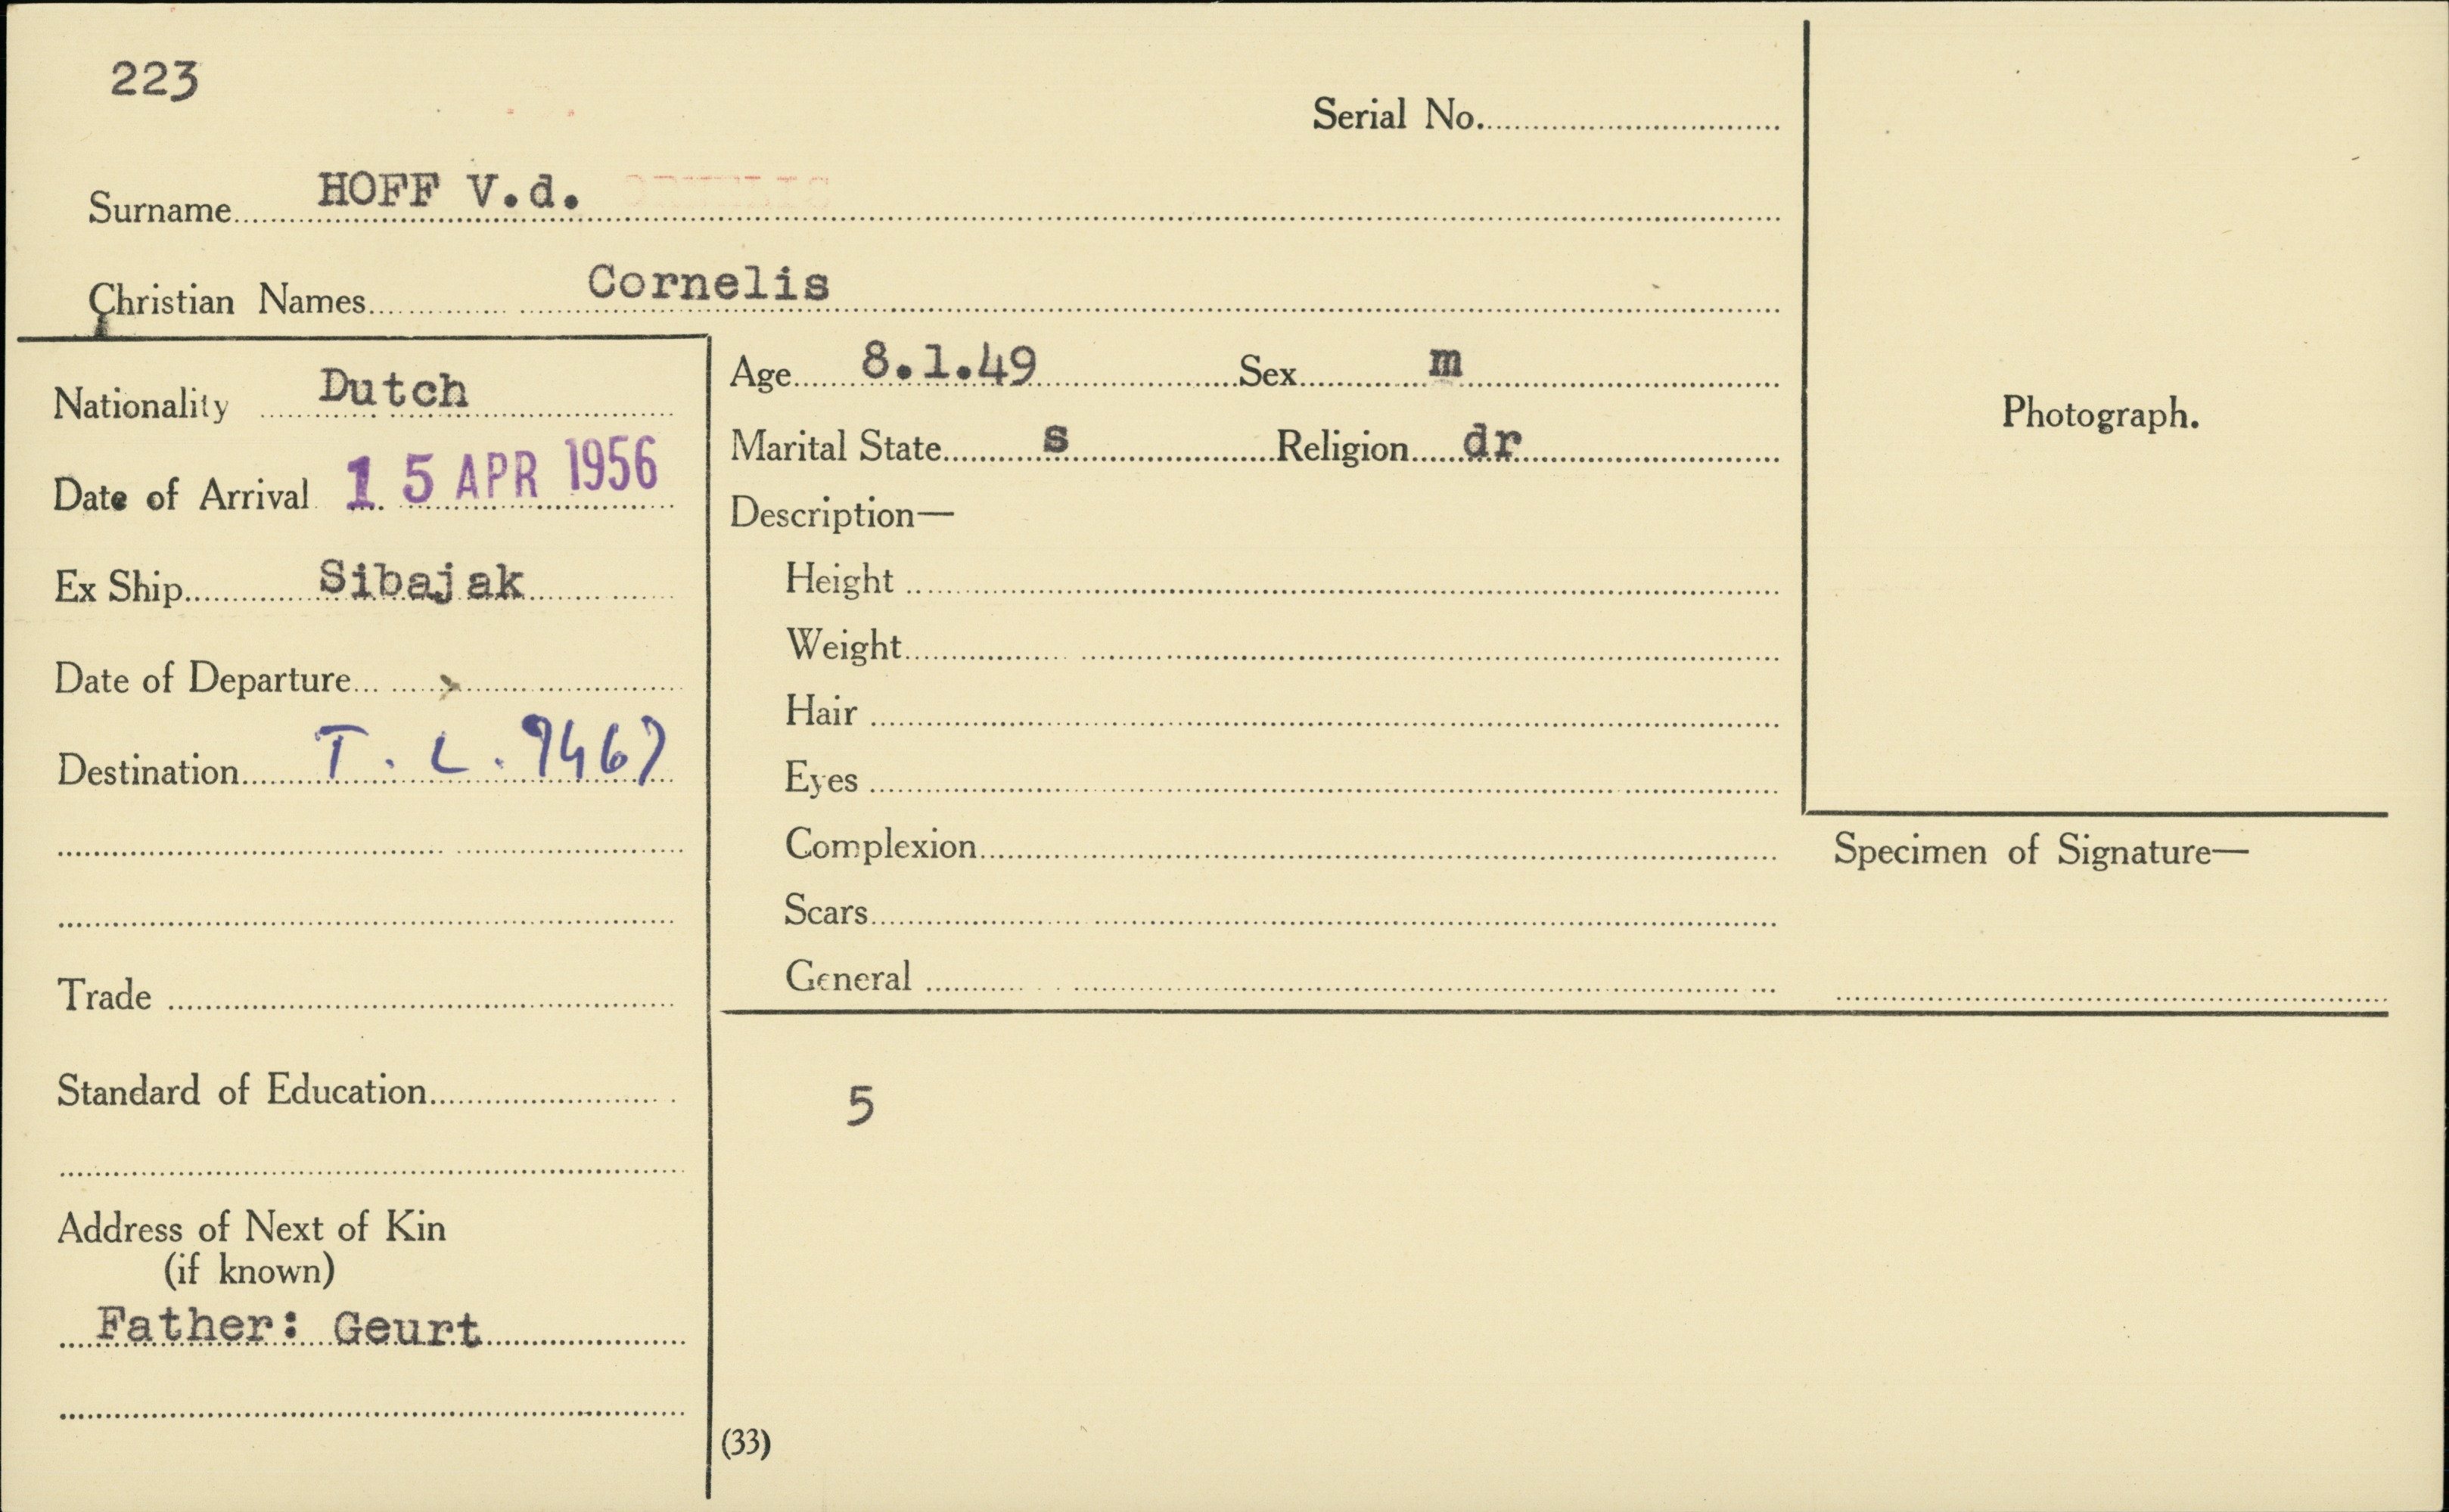 223
Serial No.
Surname HOFF V.d.
Christian Names Cornelis
Nationality Dutch
Date of Arrival 15 APR 1956
Ex Ship Sibajak
Date of Departure
Destination T. L. 9467
Trade
Standard of Education
Address of Next of Kin
(if known)
Father: Geurt
Age 8.1.49 Sex m
Marital State s Religion dr
Description—
Height
Weight
Hair
Eyes
Complexion
Scars
General
5
(33)
Photograph.
Specimen of Signature—